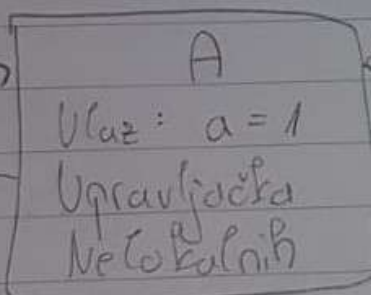 A
Ulaz: a = 1
Upravljačka
Nelokalnih